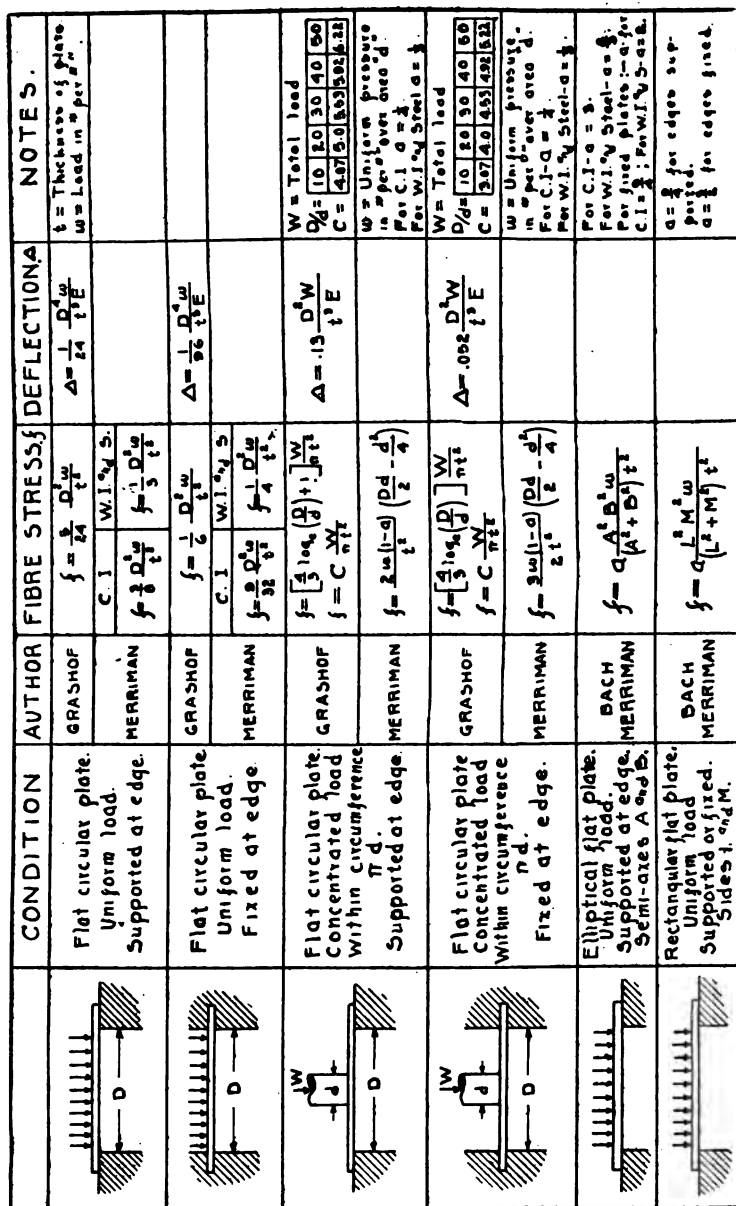 CONDITION AUTHOR FIBRE STRESS, f DEFLECTION, Δ NOTES.
Flat circular plate.
Uniform load.
Supported at edge.
GRASHOF
f = 5/24 D²w/t²
Δ = 1/24 D⁴w/t³E
t = Thickness of plate
w = Load in # per □"
MERRIMAN
C. I W. I. and S.
f = 3/8 D²w/t² f = 1/3 D²w/t²
Flat circular plate
Uniform load.
Fixed at edge
GRASHOF
f = 1/6 D²w/t²
Δ = 1/96 D⁴w/t³E
MERRIMAN
C. I W. I. and S
f = 9/32 D²w/t² f = 1/4 D²w/t²
W
d
Flat circular plate.
Concentrated load
Within circumference
π d.
Supported at edge.
GRASHOF
f = [4/3 logₑ (D/d) + 1] W/πt²
f = C W/πt²
Δ = .13 D²W/t³E
W = Total load
D/d = 10 20 30 40 50
C = 4.07 5.0 5.53 5.92 6.22
MERRIMAN
f = 2w(1-a)/t² (Dd/2 - d²/4)
w = Uniform pressure
in # per □" over area "d".
For C.I a = 1/4
For W.I. and Steel a = 1/3
W
d
Flat circular plate
Concentrated load
Within circumference
π d.
Fixed at edge.
GRASHOF
f = [4/3 logₑ (D/d)] W/πt²
f = C W/πt²
Δ = .052 D²W/t³E
W = Total load
D/d = 10 20 30 40 50
C = 3.07 4.0 4.53 4.92 5.22
MERRIMAN
f = 3w(1-a)/2t² (Dd/2 - d²/4)
w = Uniform pressure
in # per □" over area d.
For C.I-a = 1/4
For W.I. and Steel-a = 1/3.
Elliptical flat plate.
Uniform load.
Supported at edge.
Semi-axes A and B.
BACH
MERRIMAN
f = a A²B²w/(A²+B²)t²
For C.I-a = 3.
For W.I. and Steel-a =
For fixed plates:-a for
C.I = ; For W.I. and S-a=2.
Rectangular flat plate.
Uniform load
Supported or fixed.
Sides L and M.
BACH
MERRIMAN
f = a L²M²w/(L²+M²)t²
a = 3/4 for edges sup-
ported.
a = 1/2 for edges fixed.
D
D
D
D